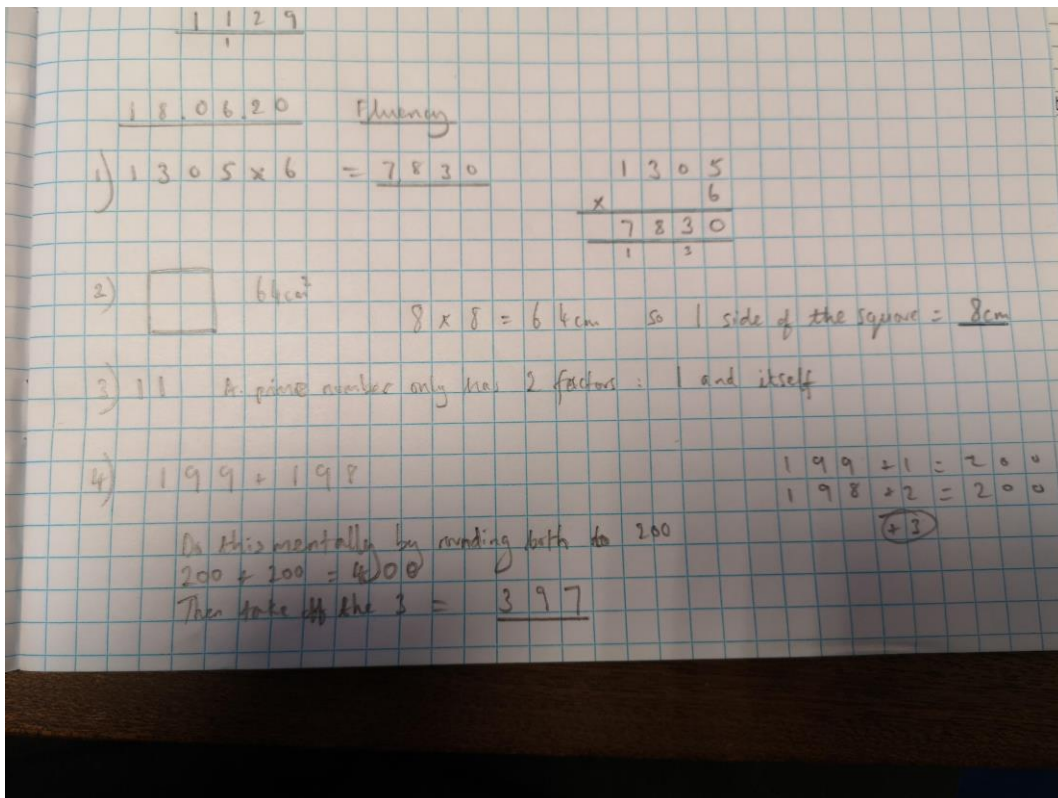 1 1 2 9
1
18.06.20 Fluency
1) 1305 x 6 = 7830
1305
x 6
7830
1 3
2) 64cm²
8 x 8 = 64cm so 1 side of the square = 8cm
3) 11 A prime number only has 2 factors : 1 and itself
4) 199 + 198
199 + 1 = 200
198 + 2 = 200
+3
Do this mentally by rounding both to 200
200 + 200 = 400
Then take off the 3 = 397